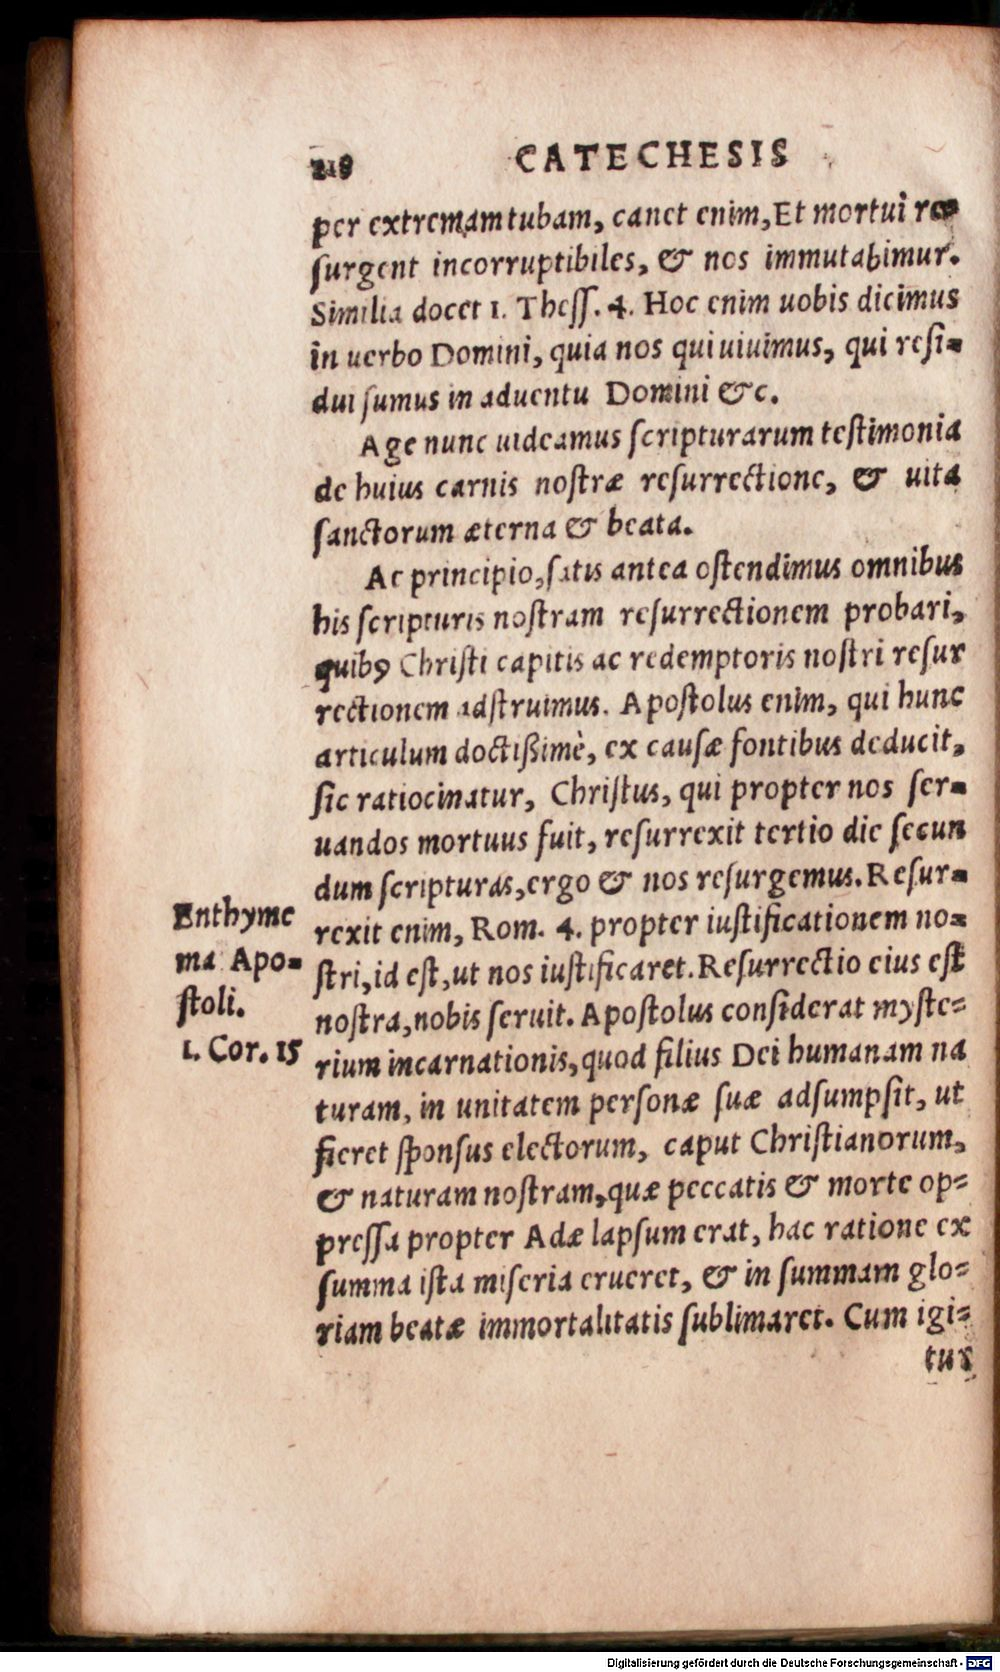 218 CATECHESIS
per extremam tubam, canet enim, Et mortui re-
ſurgent incorruptibiles, & nos immutabimur.
Similia docet 1. Theſſ. 4. Hoc enim uobis dicimus
in uerbo Domini, quia nos qui uiuimus, qui reſi-
dui ſumus in aduentu Domini &c.
Age nunc uideamus ſcripturarum teſtimonia
de huius carnis noſtræ reſurrectione, & uita
ſanctorum æterna & beata.
Ac principio, ſatis antea oſtendimus omnibus
his ſcripturis noſtram reſurrectionem probari,
quibꝰ Chriſti capitis ac redemptoris noſtri reſur
rectionem adſtruimus. Apoſtolus enim, qui hunc
articulum doctißimè, ex cauſæ fontibus deducit,
ſic ratiocinatur, Chriſtus, qui propter nos ſer-
uandos mortuus fuit, reſurrexit tertio die ſecun
dum ſcripturas, ergo & nos reſurgemus. Reſur-
rexit enim, Rom. 4. propter iuſtificationem no-
ſtri, id eſt, ut nos iuſtificaret. Reſurrectio eius eſt
noſtra, nobis ſeruit. Apoſtolus conſiderat myſte-
rium incarnationis, quod filius Dei humanam na
turam, in unitatem perſonæ ſuæ adſumpſit, ut
fieret ſponſus electorum, caput Chriſtianorum,
& naturam noſtram, quæ peccatis & morte op-
preſſa propter Adæ lapſum erat, hac ratione ex
ſumma iſta miſeria erueret, & in ſummam glo-
riam beatæ immortalitatis ſublimaret. Cum igi-
tur
Enthyme
ma Apo-
ſtoli.
1. Cor. 15
Digitalisierung gefördert durch die Deutsche Forschungsgemeinschaft - DFG